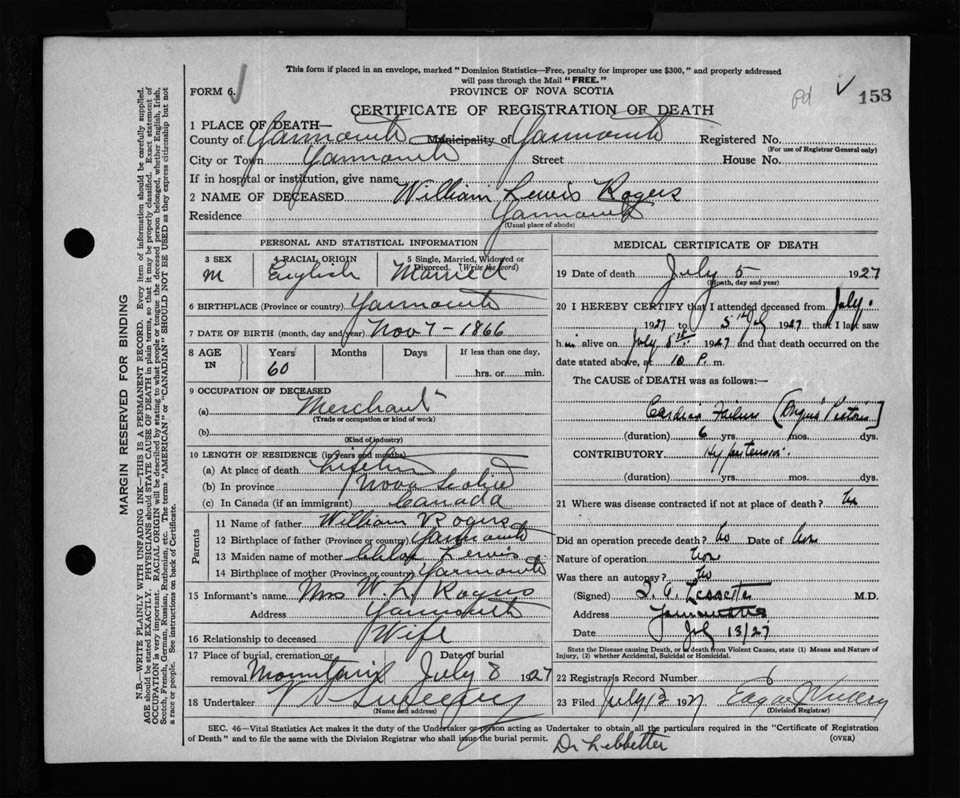 This form if placed in an envelope, marked "Dominion Statistics—Free, penalty for improper use $300," and properly addressed
will pass through the Mail "FREE."
FORM 6.
PROVINCE OF NOVA SCOTIA
Pd 158
CERTIFICATE OF REGISTRATION OF DEATH
1 PLACE OF DEATH—
County of Yarmouth Municipality of Yarmouth Registered No.
(For use of Registrar General only)
City or Town Yarmouth Street House No.
If in hospital or institution, give name
2 NAME OF DECEASED William Lewis Rogers
Residence Yarmouth
(Usual place of abode)
PERSONAL AND STATISTICAL INFORMATION
3 SEX 4 RACIAL ORIGIN 5 Single, Married, Widowed or Divorced. (Write the word)
M English Married
6 BIRTHPLACE (Province or country) Yarmouth
7 DATE OF BIRTH (month, day and year) Nov 7 - 1866
8 AGE IN Years Months Days If less than one day,
60 hrs. or min.
9 OCCUPATION OF DECEASED
(a) Merchant
(Trade or occupation or kind of work)
(b)
(Kind of industry)
10 LENGTH OF RESIDENCE (in years and months)
(a) At place of death Lifetime
(b) In province Nova Scotia
(c) In Canada (if an immigrant) Canada
Parents
11 Name of father William Rogers
12 Birthplace of father (Province or country) Yarmouth
13 Maiden name of mother Lewis
14 Birthplace of mother (Province or country) Yarmouth
15 Informant's name Mrs W. L. Rogers
Address Yarmouth
16 Relationship to deceased Wife
17 Place of burial, cremation or Date of burial
removal Mountain July 8 1927
18 Undertaker V S Sweeney
(Name and address)
MEDICAL CERTIFICATE OF DEATH
19 Date of death July 5 1927
(Month, day and year)
20 I HEREBY CERTIFY that I attended deceased from July
1927 to 5th July 1927 that I last saw
him alive on July 5th 1927 and that death occurred on the
date stated above, at 10 P. m.
The CAUSE OF DEATH was as follows:—
Cardiac Failure (Angina Pectoris)
(duration) 6 yrs. mos. dys.
CONTRIBUTORY Hypertension.
(duration) yrs. mos. dys.
21 Where was disease contracted if not at place of death?
Did an operation precede death? No Date of
Nature of operation
Was there an autopsy? No
(Signed) M.D.
Address Yarmouth
Date July 13/27
State the Disease causing Death, or in death from Violent Causes, state (1) Means and Nature of
Injury, (2) whether Accidental, Suicidal or Homicidal.
22 Registrar's Record Number 6
23 Filed July 13 1927 Edgar
(Division Registrar)
SEC. 46—Vital Statistics Act makes it the duty of the Undertaker or person acting as Undertaker to obtain all the particulars required in the "Certificate of Registration
of Death" and to file the same with the Division Registrar who shall issue the burial permit. (OVER)
Dr Lebbetter
MARGIN RESERVED FOR BINDING
N.B.—WRITE PLAINLY WITH UNFADING INK—THIS IS A PERMANENT RECORD. Every item of information should be carefully supplied.
AGE should be stated EXACTLY. PHYSICIANS should STATE CAUSE OF DEATH in plain terms, so that it may be properly classified. Exact statement of
OCCUPATION is very important. RACIAL ORIGIN will be described by stating to what people or tongue the deceased person belonged, whether English, Irish,
Scotch, French, German, Russian, Ruthenian, etc. The terms "AMERICAN" or "CANADIAN" SHOULD NOT BE USED as they express citizenship but not
a race or people. See instructions on back of Certificate.